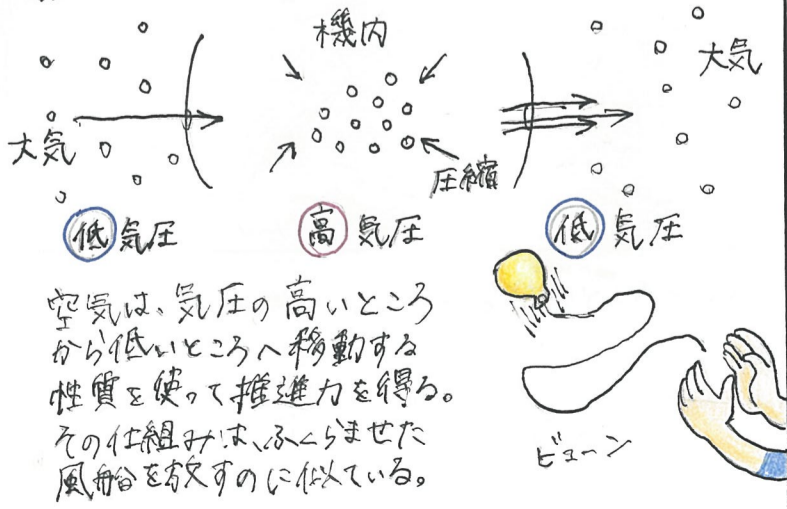 機内
大気
大気
圧縮
低気圧
高気圧
低気圧
空気は、気圧の高いところ
から低いところへ移動する
性質を使って推進力を得る。
その仕組みは、ふくらませた
風船を放すのに似ている。
ビューン